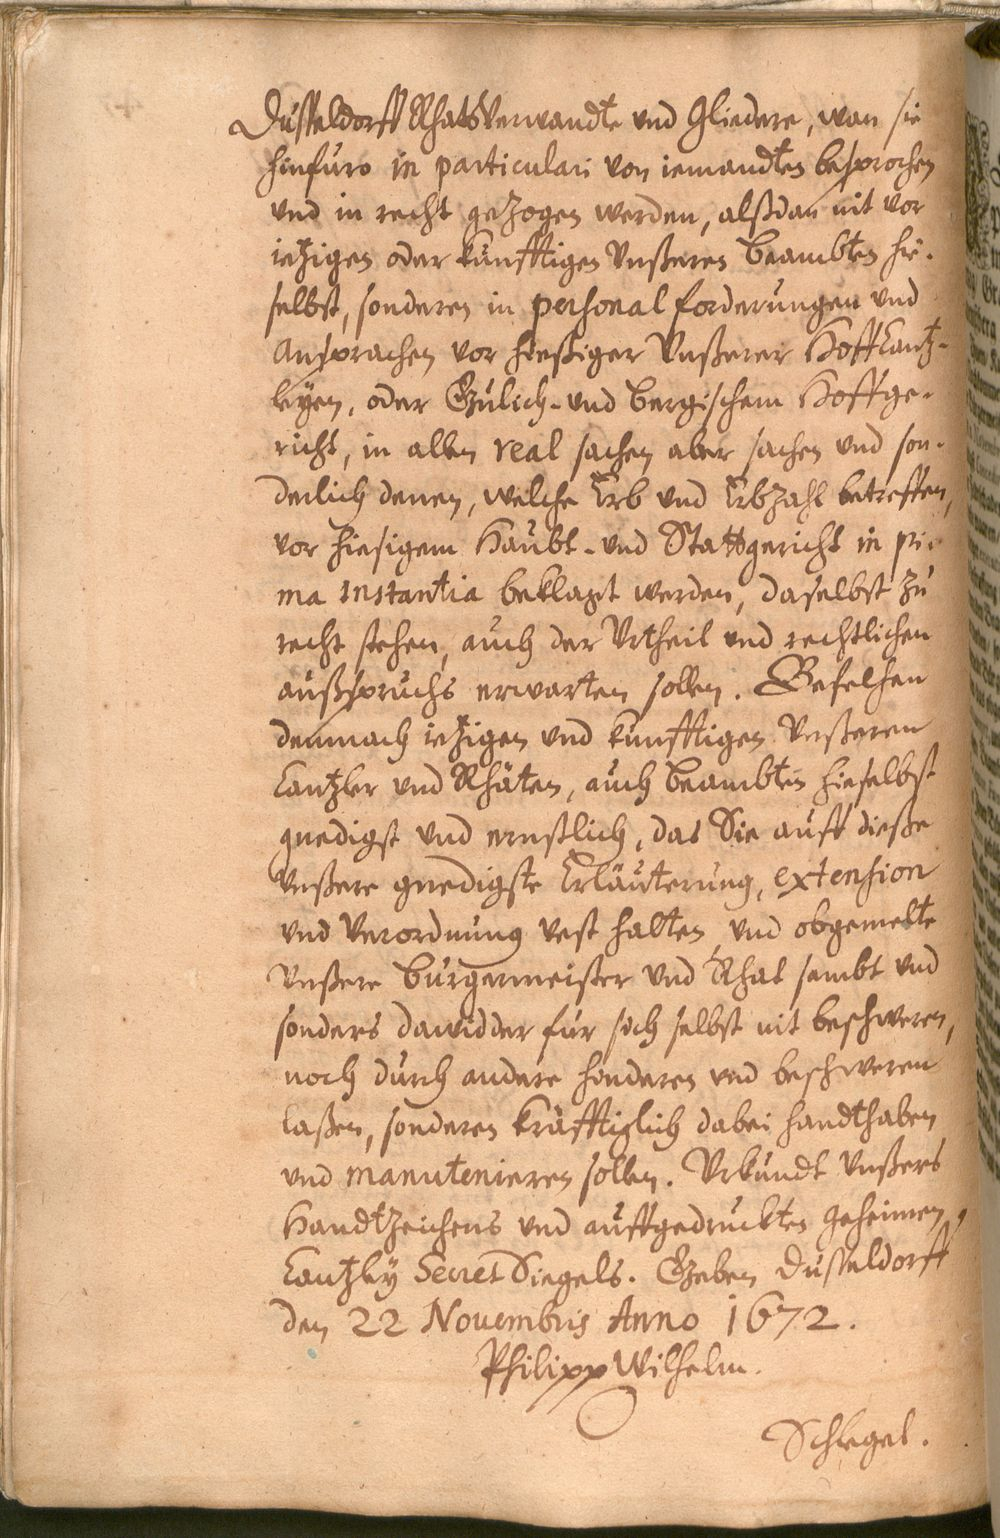 Düsseldorff RhatsVerwandte und Gliedere, wan sie
hinfüro in particulari von iemandten besprochen
und in recht gezogen werden, alßdan nit vor
ietzigen oder künfftigen Unßeren Beambten hie-
selbst, sonderen in personal forderungen und
Ansprachen vor hießiger Unßerer Hoff Cantz-
leyen, oder Gülich- und Bergischem Hoffge-
richt, in allen real sachen aber sachen und son-
derlich denen, welche Erb und Erbzahl betreffen,
vor hiesigem Haubt- und Stattgericht in pri-
ma instantia beklagt werden, daselbst zu
recht stehen, auch der Urtheil und rechtlichen
außspruchs erwarten sollen. Befelhen
demnach ietzigen und künfftigen Unßeren
Cantzler und Rhäten, auch Beambten hieselbst
gnedigst und ernstlich, das Sie auff dieße
Unßere gnedigste Erläuterung, extension
und Verordnung vest halten, und obgemelte
Unßere Bürgermeister und Rhat sambt und
sonders dawidder für sich selbst nit beschweren,
noch durch andere hinderen und beschweren
laßen, sonderen kräfftiglich dabei handthaben
und manutenieren sollen. Urkundt Unßers
Handtzeichens und auffgedruckten geheimen
Cantzley Secret Siegels. Geben Düsseldorff
den 22 Novembris Anno 1672.
Philipp Wilhelm.
Schlegel.